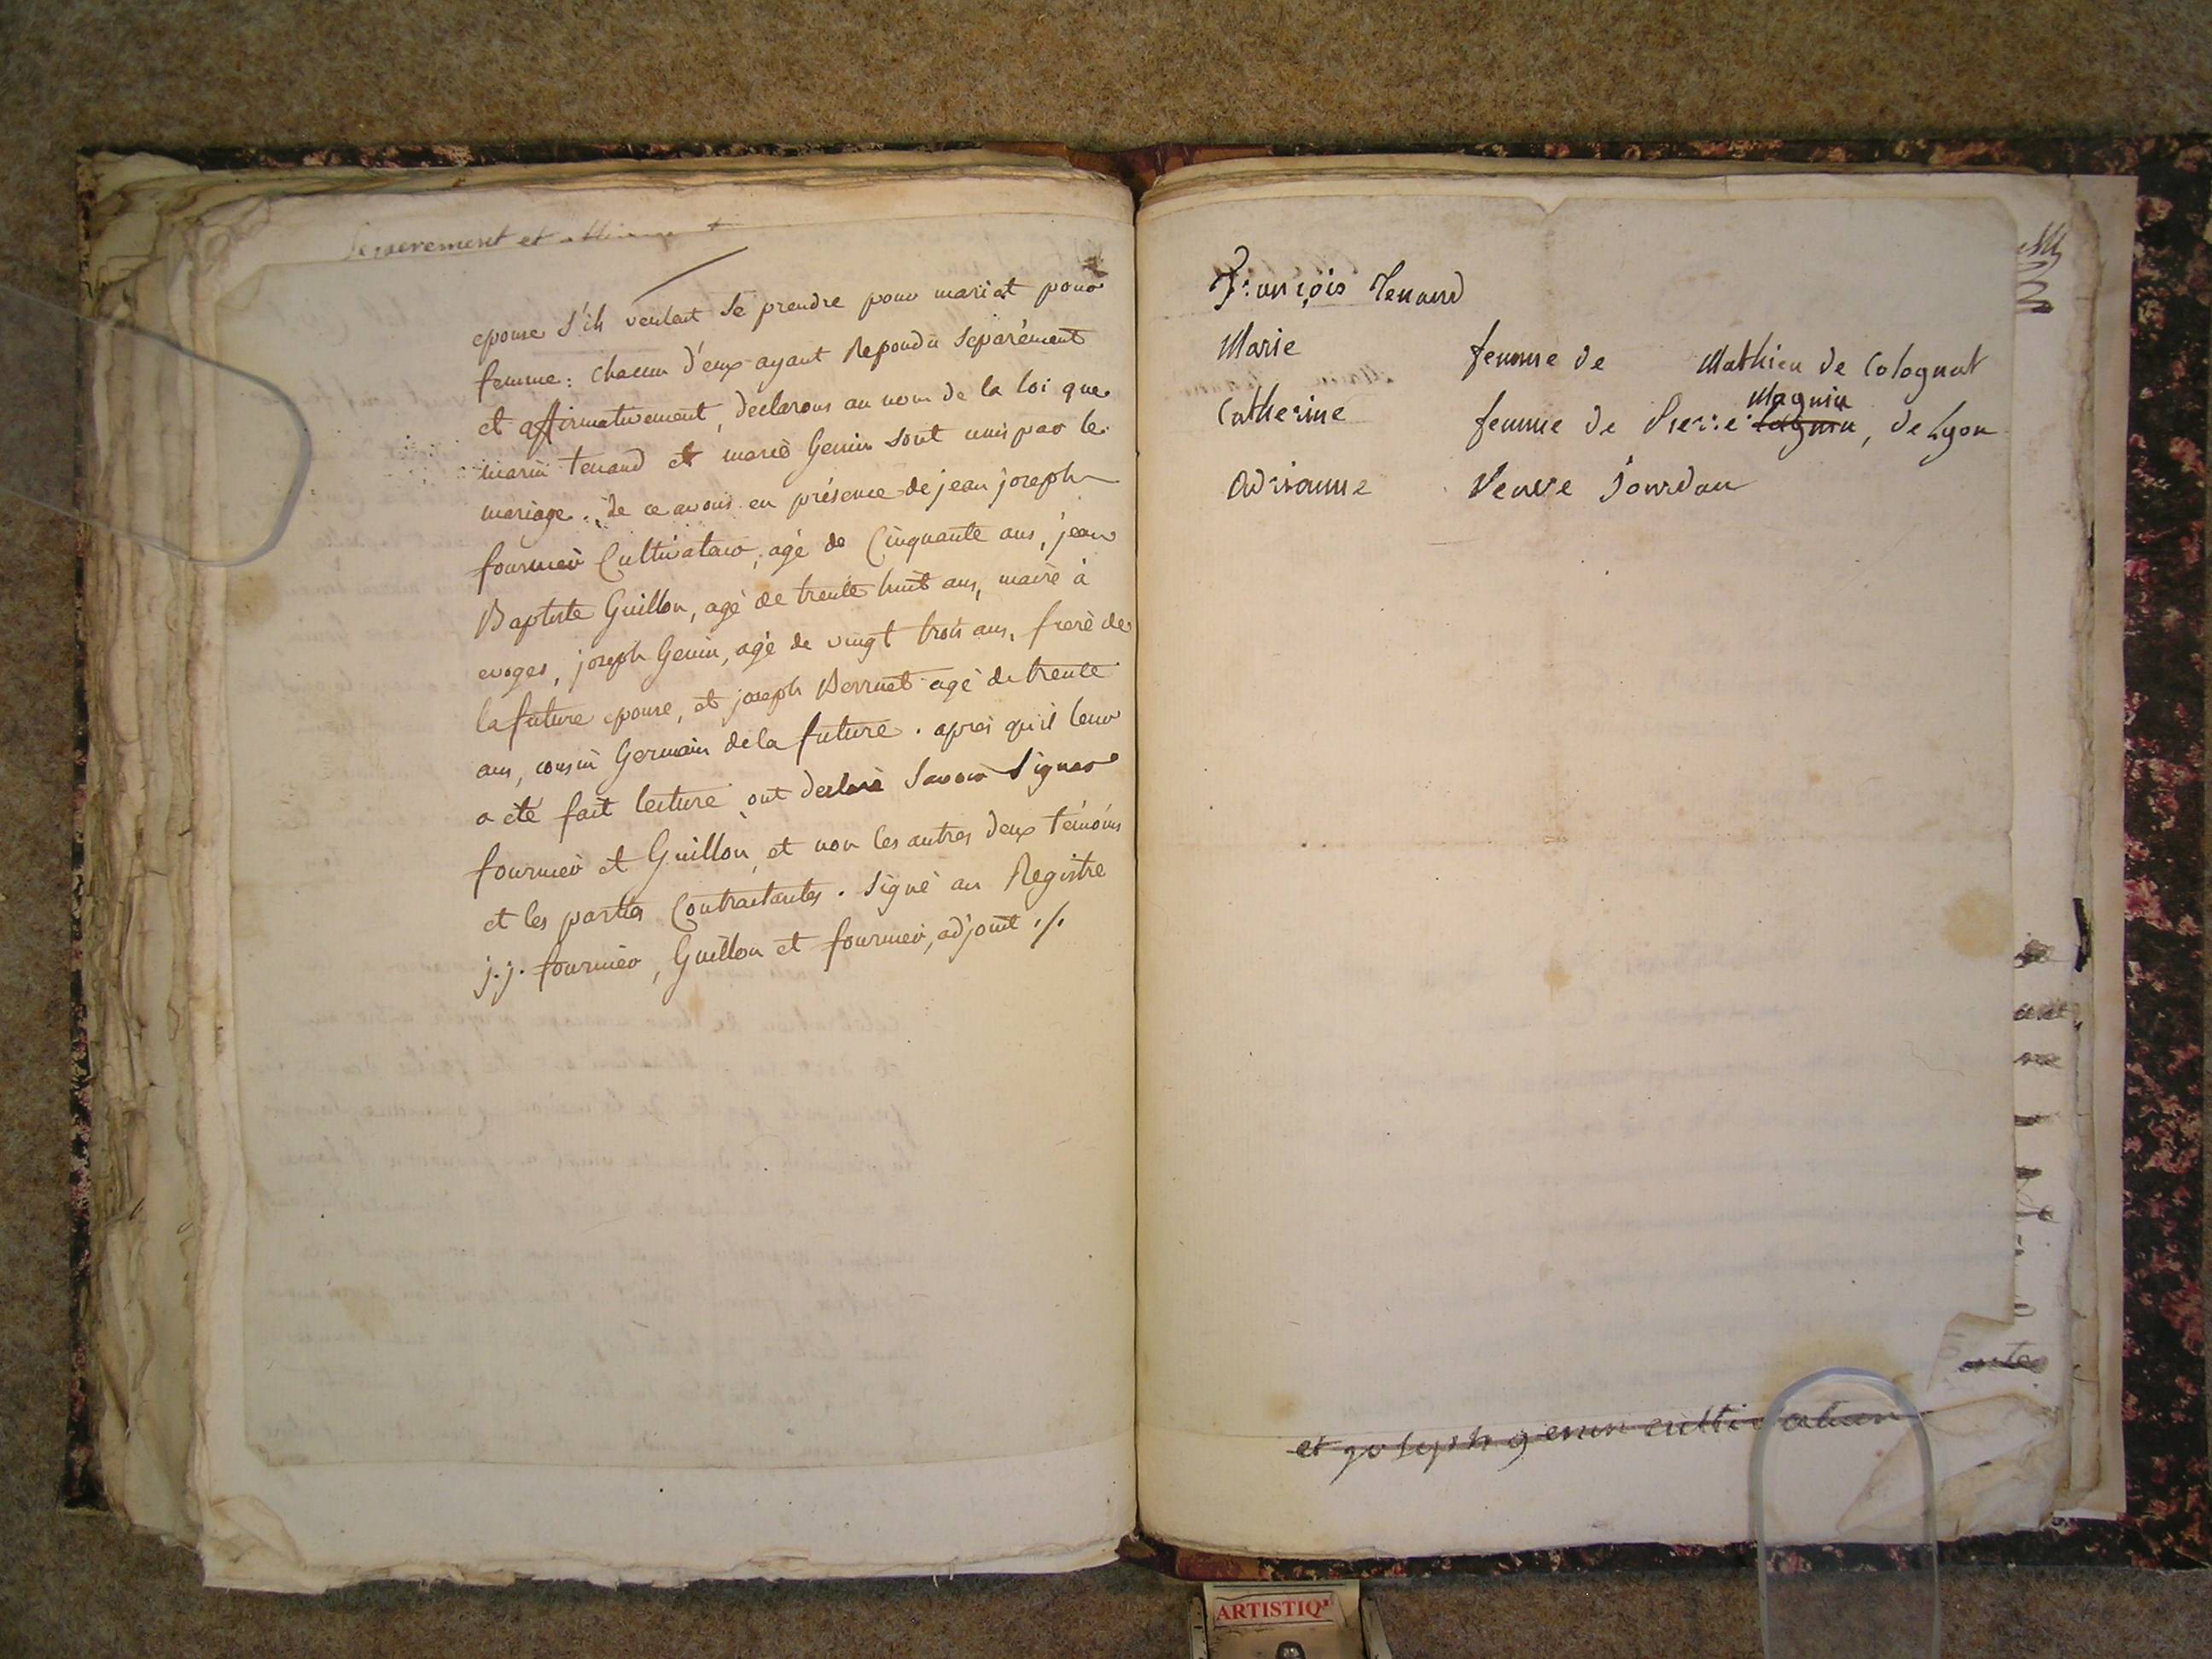 separement et
epouse s'ils veulent se prendre pour mari et pour
femme : chacun d'eux ayant Repondu separément
et affirmativement, declarons au nom de la loi que
marin tenand et marie Genin sont unis par le
mariage. de ce avons en présence de jean joseph
fournier Cultivateur, agé de Cinquante ans, jean
Baptiste Guillon, agé de trente huit ans, maire à
evoges, joseph Genin, agé de vingt trois ans, frere de
la future epouse, et joseph Berruet agé de trente
ans, cousin Germain de la future. après qu'il leur
a été fait lecture, ont declaré Savoir Signer
fournier et Guillon, et non les autres deux témoins
et les parties Contractantes. Signé au Registre
j. j. fournier, Guillon et fournier, adjoint ./.
François Tenand
Marie femme de Mathieu de Colognat
Magnin
Catherine femme de Pierre , de Lyon
Adrianne Veuve Jourdan
et joseph genin cultivateur
ARTISTIQ